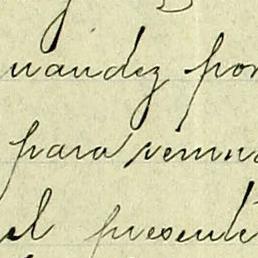 nandez por
para remu
el presente